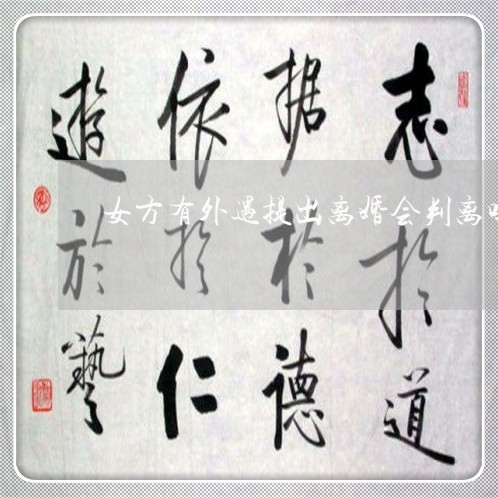 志於道
据於德
依於仁
遊於藝
女方有外遇提出离婚会判离吗